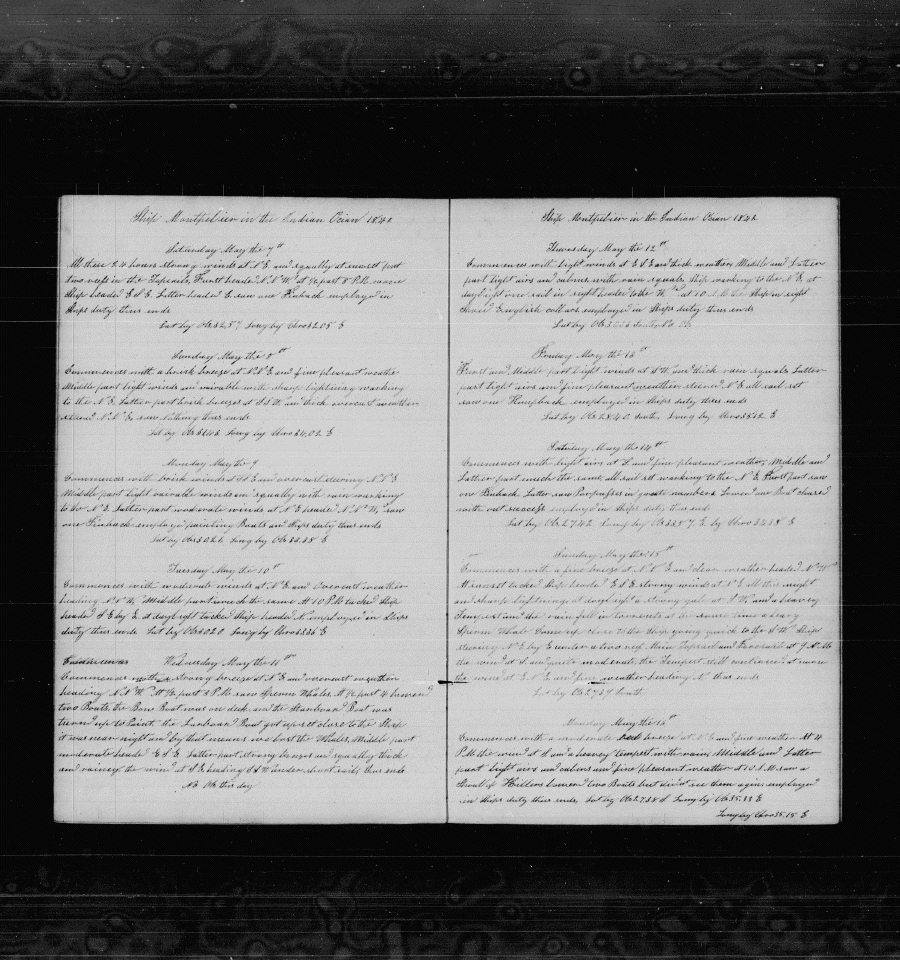 Ship Montpelier in the Indian Ocian 1842
Saturday May the 7th
All these 24 hours strong winds at N E and squally at sunset put
two reefs in the Topsails, Furst heade N.N.W. at ½ part 8 P.M. wore
Ship heade E S E Latter heade E saw one Finback employd in
Ships duty thus ends
Lat by Obs 32,57 Long by Chro 32.05 E
Sunday May the 8th
Commences with a brisk breeze at N.N.E and fine pleasant weathe
Middle part light winds and vairable with sharp lightning working
to the N E Latter part brisk breeze at S S W and thick overcast weather
steard N.N.E saw Nothing thus ends
Lat by Obs 31.43 Long by Chro 34.02 E
Monday May the 9
Commences with brisk winds S S E and overcast stering N.N.E
Middle part light vairable winds and squally with rain working
to the N E Latter part moderate winds at N E heade N.N.W. saw
one Finback employd painting Boats and Ships duty thus ends
Lat by Obs 30.21 Long by Chro 33.38 E
Tuesday May the 10th
Commences with moderate winds at N E and Overcast weather
heading N.N.W. Middle part much the same At 10 P.M. tacked Ship
heade S E by E at daylight tacked Ship heade N employed in Ships
duty thus ends Lat by Obs 30.20 Long by Chro 33.36 E
Wednesday May the 11th
Commences with a strong breeze at N E and overcast weather
heading N.N.W. At ½ part 3 P.M. saw Sperm Whales At ½ part 4 lowered
two Boats the Bow Boat was on deck and the Starboard Boat was
turned up to Paint the Larboard Boat got up set close to the Ship
it was near night and by that means we lost the Whales, Middle part
moderate heade E S E Latter part strong breezes and squally thick
and rainey the wind at S E heading S S W under short sail thus ends
No Obs this day
Ship Montpelier in the Indian Ocean 1842
Thursday May the 12th
Commences with light winds at E S E and thick weather Middle and Latter
part light airs and calms with rain squals Ship working to the N E at
daylight one sail in sight heade to the W. at 10 A.M. the Ship in sight
employed in Ships duty thus ends
Lat by Obs
Friday May the 13th
Furst and Middle part light winds at S W and thick rain squals Latter
part light airs and fine pleasant weather steered N E all sail set
saw one Humpback employed in Ships duty thus ends
Lat by Obs 28.40 South, Long by Chro 35.12 E
Saturday May the 14th
Commences with light airs at S and fine pleasant weather, Middle and
Latter part much the same all sail set working to the N E Furst part saw
one Finback Latter saw Porpoises in great numbers Lowered one Boat chased
with out success employed in Ships duty thus ends
Lat by Obs 27.42 Long by Obs 35.7 E by Chro 34.38 E
Sunday May the 15th
Commences with a fine breeze at N.N.E and clear weather heade N.W
At sunset tacked Ship heade E S E strong winds at N E All this night
and sharp lightning at daylight a strong gale at N W and a heavey
Tempest and the rain fell in torrents at the same time a larg
Sperm Whale Came up close to the Ship going quick to the S W Ship
steering N E by E under a two reef Main Topsail and Foresail at 9 A.M
the wind at S and quite moderate the Tempest still continues at noon
the wind at E N E and fine weather heading N thus ends
Lat by Obs 27.57 South
Monday May the 16th
Commences with a moderate breeze at N E and fine weather At 4
P.M. the wind at S and a heavey tempest with rain, Middle and Latter
part light airs and calms and fine pleasant weather at 10 A.M. saw a
shoal of Killers lowered two Boats but did not see them again employed
in Ships duty thus ends, Lat by Obs 27.38 S Long by Obs 35.33 E
Long by Chro 35.15 E